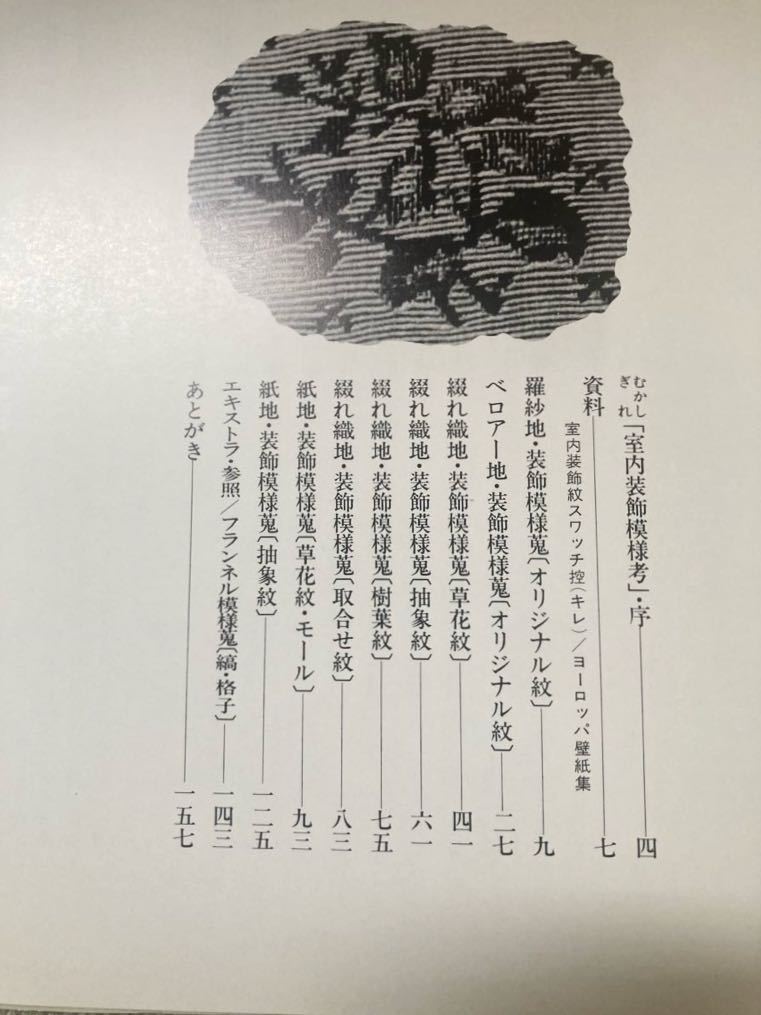 むかしぎれ「室内装飾模様考」・序――四
資料――七
室内装飾紋スワッチ控(キレ)/ヨーロッパ壁紙集
羅紗地・装飾模様蒐〔オリジナル紋〕――九
ベロアー地・装飾模様蒐〔オリジナル紋〕――二七
綴れ織地・装飾模様蒐〔草花紋〕――四一
綴れ織地・装飾模様蒐〔抽象紋〕――六一
綴れ織地・装飾模様蒐〔樹葉紋〕――七五
綴れ織地・装飾模様蒐〔取合せ紋〕――八三
紙地・装飾模様蒐〔草花紋・モール〕――九三
紙地・装飾模様蒐〔抽象紋〕――一二五
エキストラ・参照/フランネル模様蒐〔縞・格子〕――一四三
あとがき――一五七